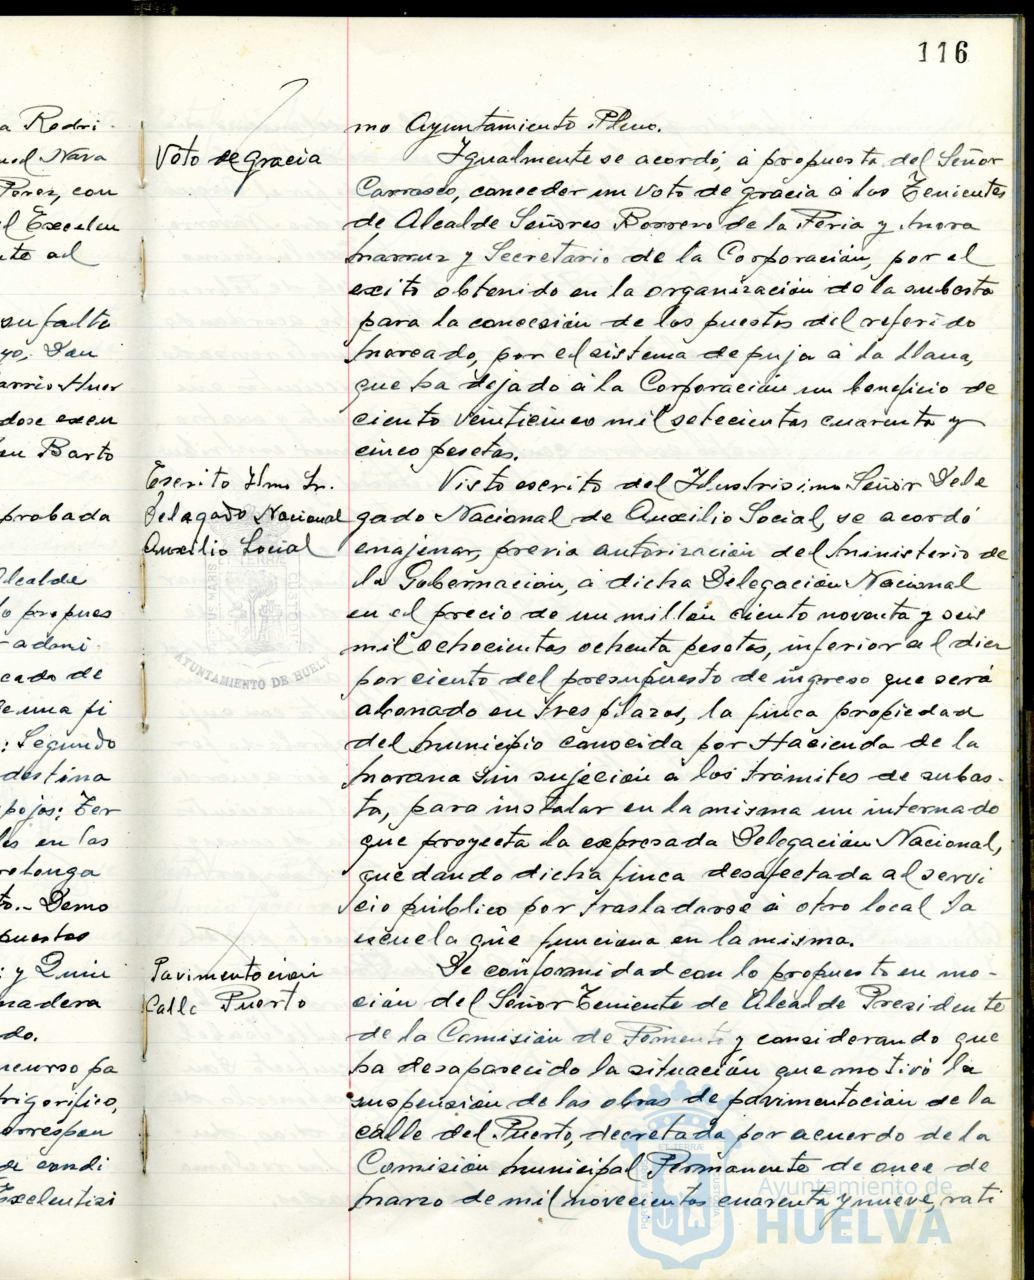 116
a Rodri-
uel Nava
Pérez, con
el Excelen
nte al
su falta
yo, Don
arrio Huer
dose exen
on Barto
probada
Alcalde
lo propues
r adoni
cado de
de una fi
: Segundo
destina
pojos: Ter
les en las
rolonga
to.- Demo
puestos
: y Quin
madera
do.
ncurso pa
frigorífico,
orrespon
de condi
Excelentísi
Voto de gracia
mo Ayuntamiento Pleno.
Igualmente se acordó, á propuesta del Señor
Carrasco, conceder un voto de gracia á los Tenientes
de Alcalde Señores Borrero de la Feria y Mora
Narruz y Secretario de la Corporación, por el
exito obtenido en la organización de la subasta
para la concesión de los puestos del referido
Mercado, por el sistema de puja á la llana,
que ha dejado á la Corporación un beneficio de
ciento veinticinco mil setecientas cuarenta y
cinco pesetas.
Escrito Ilmo Sr.
Delegado Nacional
Auxilio Social
Visto escrito del Ilustrisimo Señor Dele
gado Nacional de Auxilio Social, se acordó
enajenar, previa autorización del Ministerio de
la Gobernación, á dicha Delegación Nacional
en el precio de un millón ciento noventa y seis
mil ochocientas ochenta pesetas, inferior al diez
por ciento del presupuesto de ingreso que será
abonado en tres plazos, la finca propiedad
del Municipio conocida por Hacienda de la
Morana sin sujeción á los trámites de subas-
ta, para instalar en la misma un internado
que proyecta la expresada Delegación Nacional,
quedando dicha finca desafectada al servi
cio público por trasladarse á otro local la
escuela que funciona en la misma.
Pavimentación
Calle Puerto
De conformidad con lo propuesto en mo-
ción del Señor Teniente de Alcalde Presidente
de la Comisión de Fomento y considerando que
ha desaparecido la situación que motivó la
suspensión de las obras de pavimentación de la
calle del Puerto, decretada por acuerdo de la
Comisión Municipal Permanente de once de
Marzo de mil novecientos cuarenta y nueve, rati
AYUNTAMIENTO DE HUELV
Ayuntamiento de
HUELVA